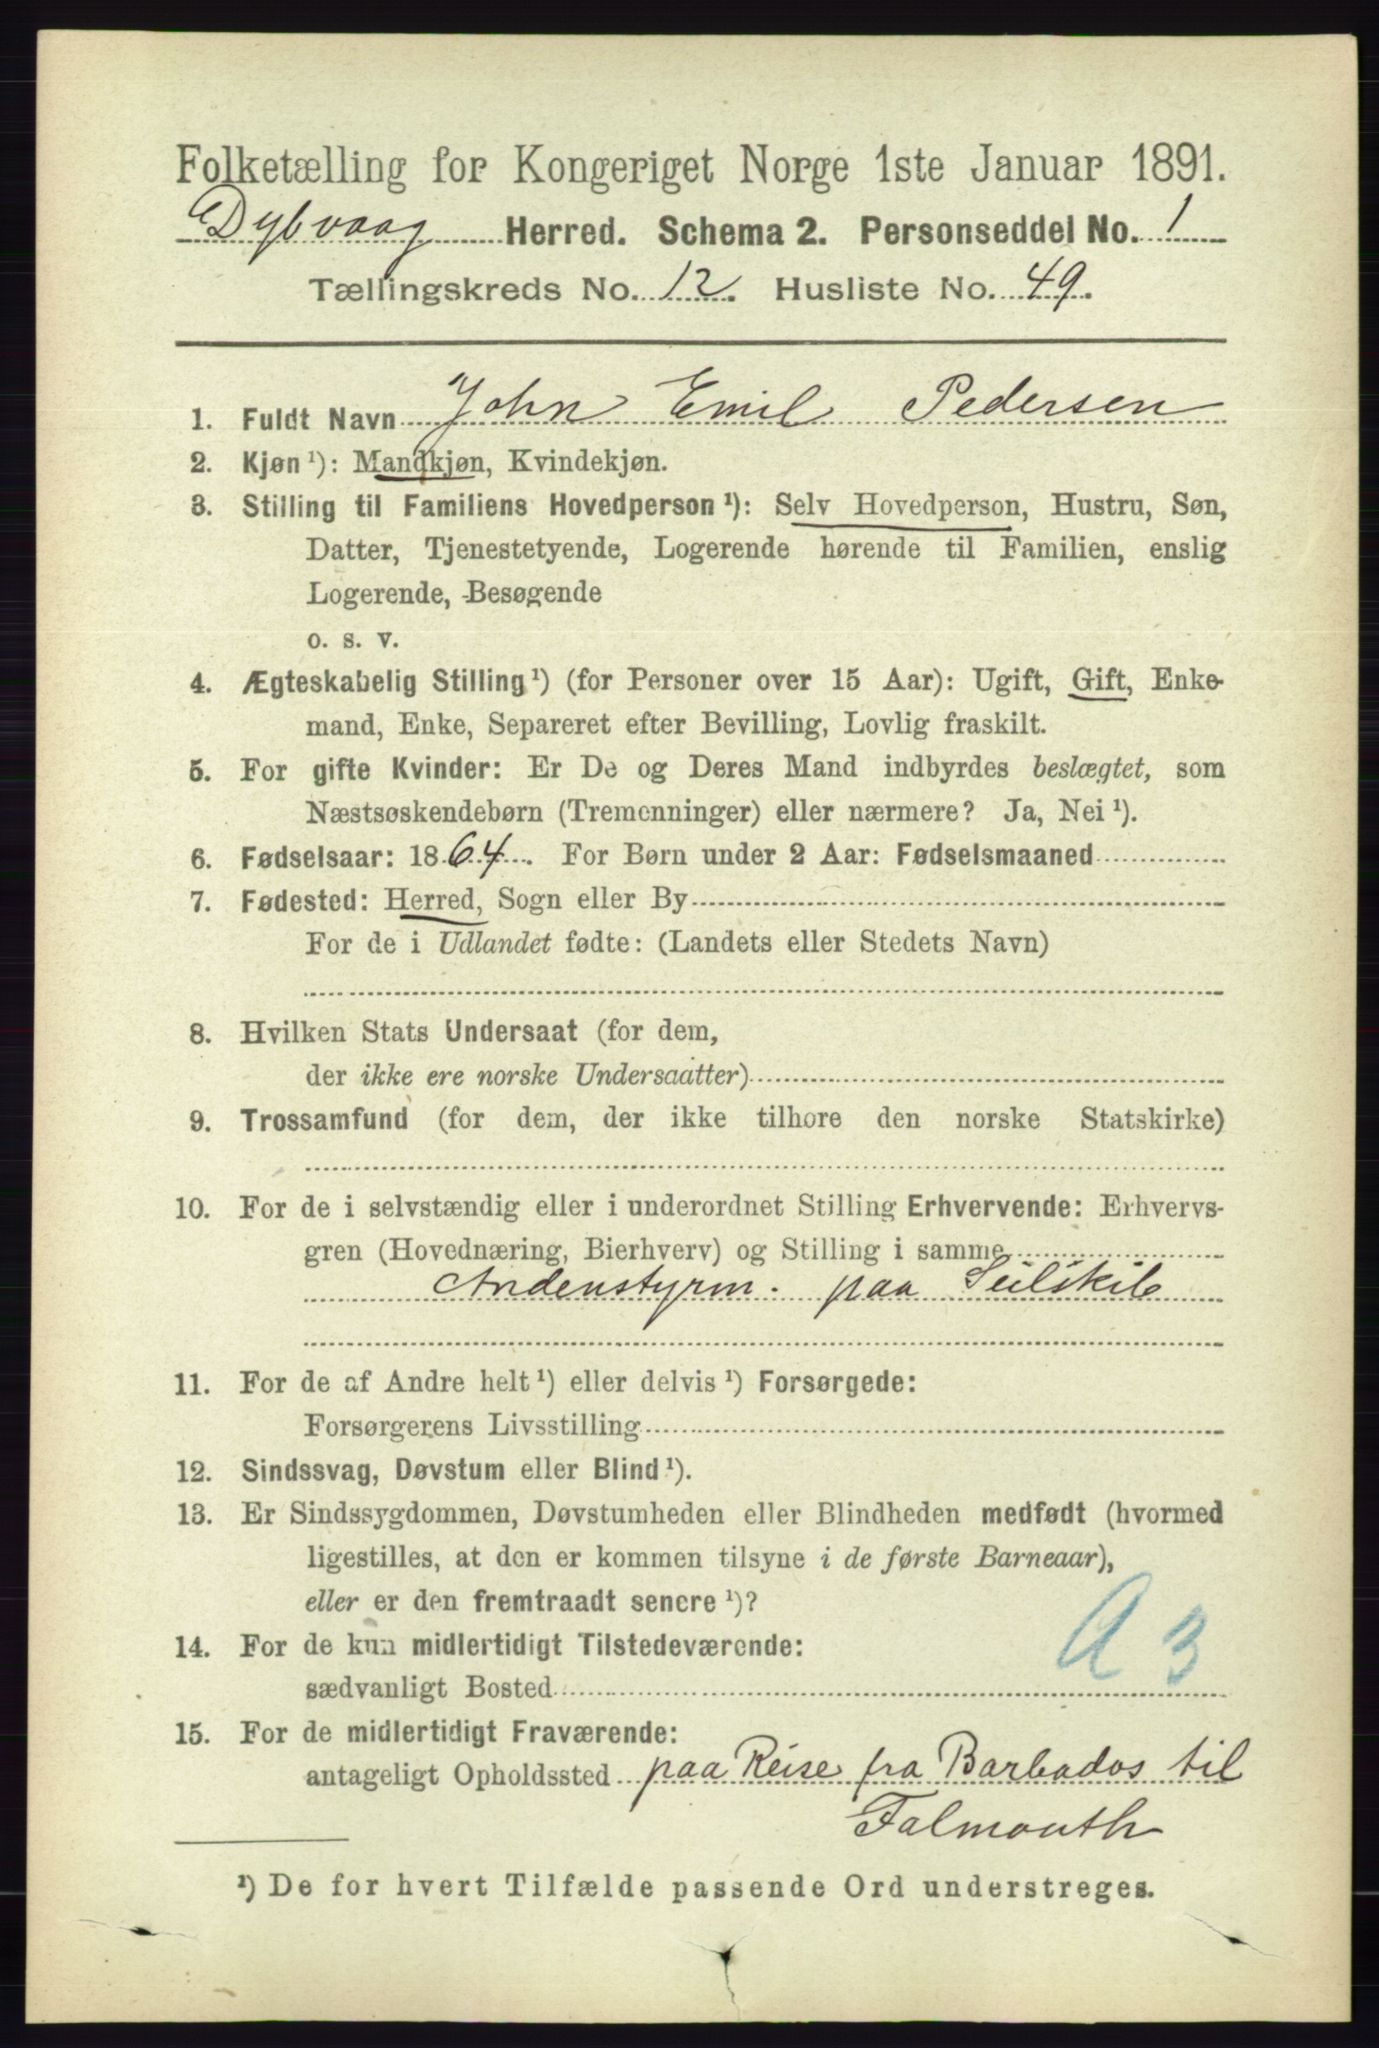 Folketælling for Kongeriget Norge 1ste Januar 1891.
Dybvaag Herred. Schema 2. Personseddel No. 1
Tællingskreds No. 12. Husliste No. 49.
1. Fuldt Navn John Emil Pedersen
2. Kjøn ¹): Mandkjøn, Kvindekjøn.
3. Stilling til Familiens Hovedperson ¹): Selv Hovedperson, Hustru, Søn,
Datter, Tjenestetyende, Logerende hørende til Familien, enslig
Logerende, Besøgende
o. s. v.
4. Ægteskabelig Stilling ¹) (for Personer over 15 Aar): Ugift, Gift, Enke-
mand, Enke, Separeret efter Bevilling, Lovlig fraskilt.
5. For gifte Kvinder: Er De og Deres Mand indbyrdes beslægtet, som
Næstsøskendebørn (Tremenninger) eller nærmere? Ja, Nei ¹).
6. Fødselsaar: 1864. For Børn under 2 Aar: Fødselsmaaned
7. Fødested: Herred, Sogn eller By
For de i Udlandet fødte: (Landets eller Stedets Navn)
8. Hvilken Stats Undersaat (for dem,
der ikke ere norske Undersaatter)
9. Trossamfund (for dem, der ikke tilhøre den norske Statskirke)
10. For de i selvstændig eller i underordnet Stilling Erhvervende: Erhvervs-
gren (Hovednæring, Bierhverv) og Stilling i samme
Andenstyrm. paa Seilskib
11. For de af Andre helt ¹) eller delvis ¹) Forsørgede:
Forsørgerens Livsstilling
12. Sindssvag, Døvstum eller Blind ¹).
13. Er Sindssygdommen, Døvstumheden eller Blindheden medfødt (hvormed
ligestilles, at den er kommen tilsyne i de første Barneaar),
eller er den fremtraadt senere ¹)?
A 3
14. For de kun midlertidigt Tilstedeværende:
sædvanligt Bosted
15. For de midlertidigt Fraværende:
antageligt Opholdssted paa Reise fra Barbados til
Falmouth
¹) De for hvert Tilfælde passende Ord understreges.